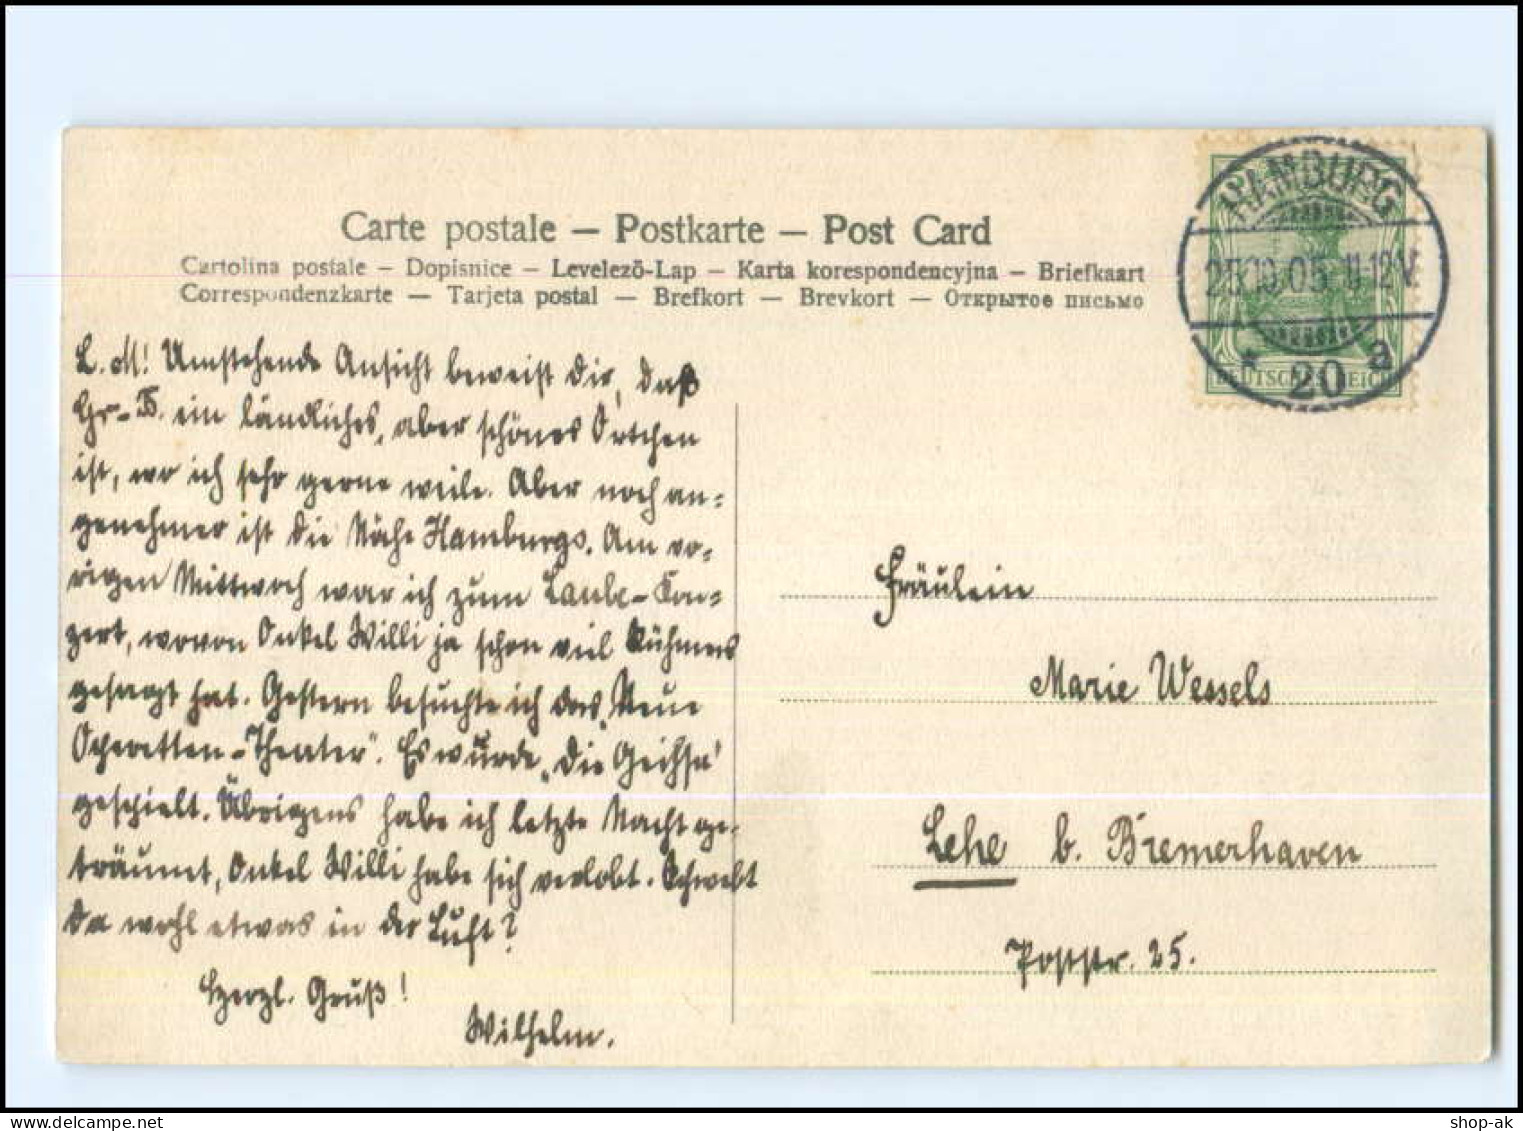 Carte postale – Postkarte – Post Card
Cartolina postale – Dopisnice – Levelező-Lap – Karta korespondencyjna – Briefkaart
Correspondenzkarte – Tarjeta postal – Brefkort – Brevkort – Открытое письмо
HAMBURG
25.10.05. 11-12 V.
* 20 a
DEUTSCHES REICH
L. M! Umstehende Ansicht beweist dir, daß
Gr.-B. ein ländliches, aber schönes Örtchen
ist, wo ich sehr gerne weile. Aber noch an-
genehmer ist die Nähe Hamburgs. Am vo-
rigen Mittwoch war ich zum Laube-Kon-
zert, wovon Onkel Willi ja schon viel Rühmens
gesagt hat. Gestern besuchte ich das „Neue
Operetten-Theater". Es wurde „Die Geisha"
gespielt. Übrigens habe ich letzte Nacht ge-
träumt, Onkel Willi habe sich verlobt. Schwebt
da wohl etwas in der Luft?
Herzl. Gruß!
Wilhelm.
Fräulein
Marie Wessels
Lehe b. Bremerhaven
Poststr. 25.
www.delcampe.net
shop-ak